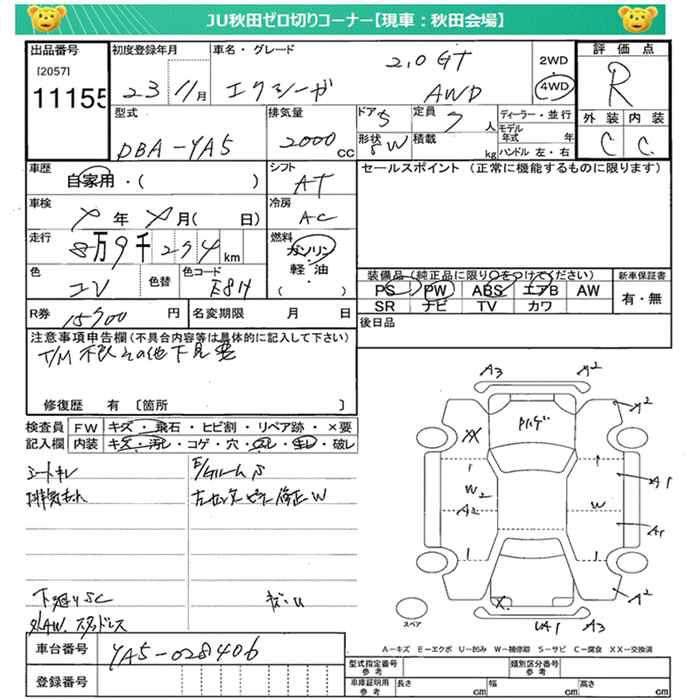 JU秋田ゼロ切りコーナー【現車：秋田会場】
出品番号
[2057]
11155
初度登録年月
23 11月
車名・グレード
エクシーガ
2.0GT
AWD
2WD
・
4WD
評価点
R
外装 内装
C C
型式
DBA-YA5
排気量
2000
CC
ドア 5
形状 5W
定員 7 人
積載 kg
ディーラー・並行
モデル年式 年
ハンドル 左・右
車歴
自家用・( )
シフト
AT
セールスポイント (正常に機能するものに限ります)
車検
年 月( 日)
冷房
AC
走行
8万9千294km
燃料
ガソリン
・
軽油
・
( )
色
コン
色替
色コード
E8H
装備品(純正品に限り○をつけてください)
PS PW ABS エアB AW
SR ナビ TV カワ
新車保証書
有・無
R券
15900 円
名変期限 月 日
後日品
注意事項申告欄(不具合内容等は具体的に記入して下さい)
T/M不良その他下見要
修復歴 有 〔箇所 〕
検査員記入欄
FW キズ・飛石・ヒビ割・リペア跡・×要
内装 キズ・汚れ・コゲ・穴・スレ・キレ・破レ
シートキレ
下廻りSC
社外AW.スタッドレス
車台番号
YA5-028406
登録番号
A3
A2
A2
XX
W2
A2
W
A1
A1
A2
X
UA1
A3
スペア
A―キズ E―エクボ U―凹み W―補修跡 S―サビ C―腐食 XX―交換済
型式指定番号
参考
類別区分番号
参考
車庫証明用
参考
長さ cm
幅 cm
高さ cm